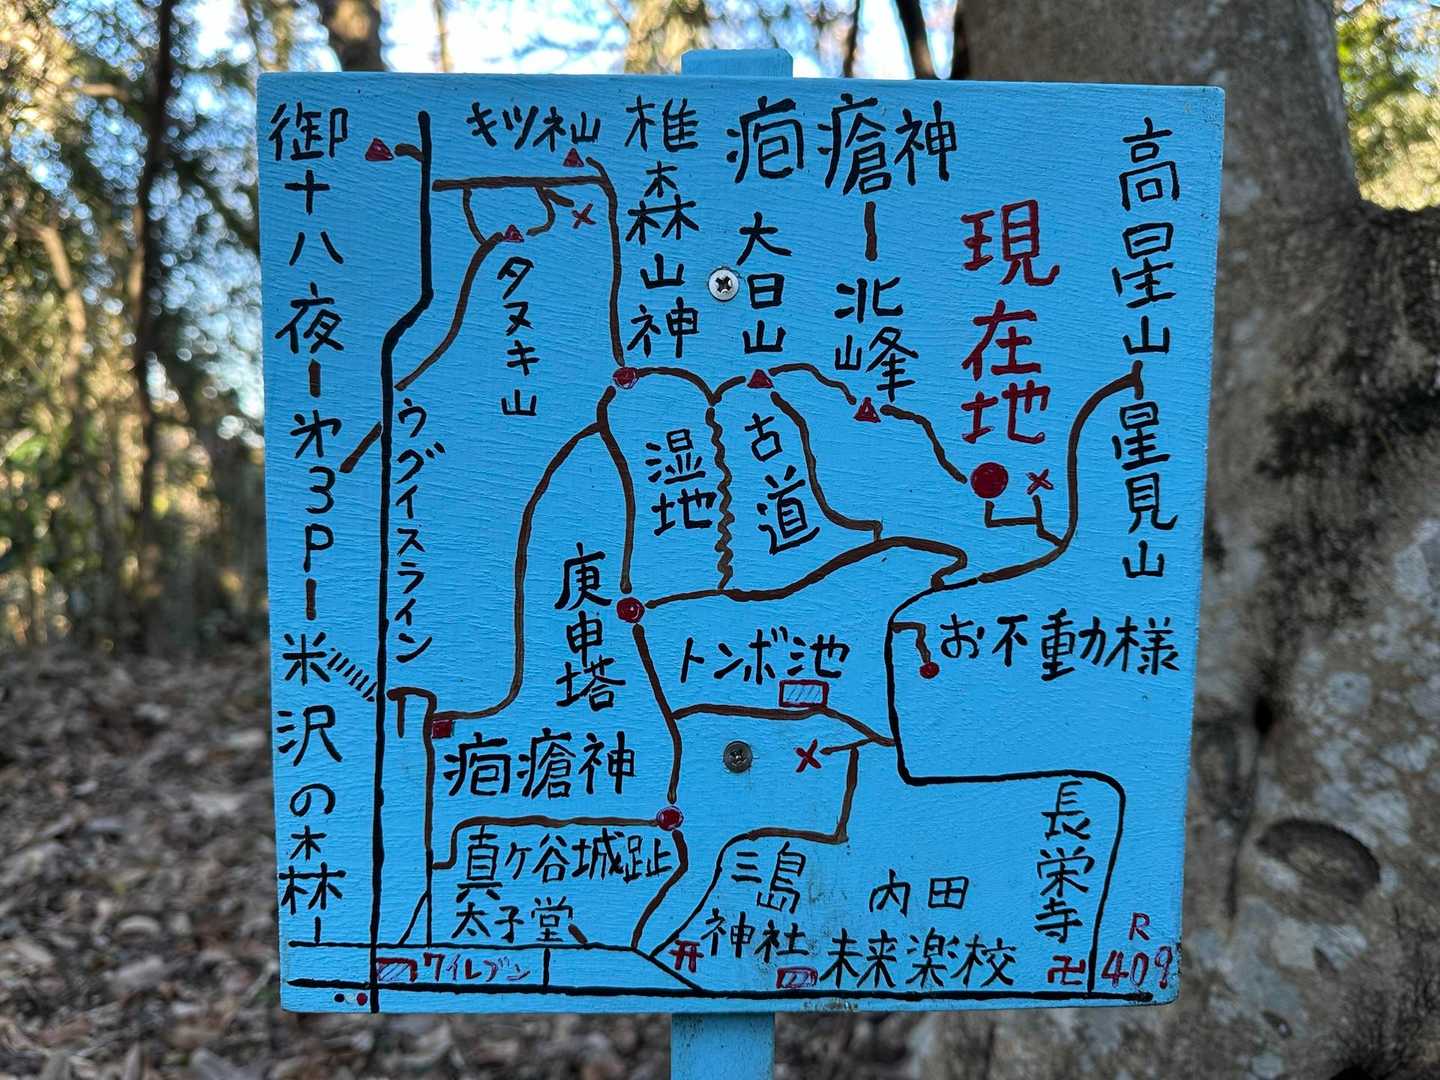 御十八夜ー第3Pー米沢の森ー
キツネ山
椎木森山神
疱瘡神ー北峰
高星山ー星見山
大日山
現在地
タヌキ山
ウグイスライン
湿地
古道
庚申塔
トンボ池
お不動様
疱瘡神
真ケ谷城趾
太子堂
三島神社
内田未来楽校
長栄寺
卍
R409